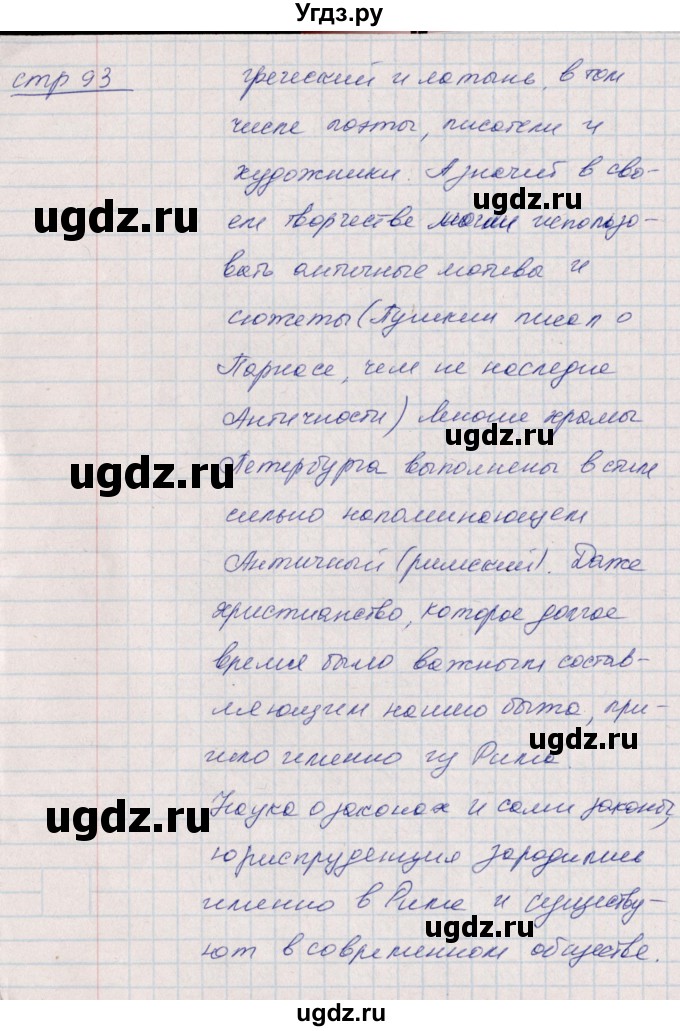 Угдз.ру
стр 93
греческий и латынь, в том
числе поэты, писатели и
художники. А значит в сво-
ugdz.ru
ugdz.ru
ем творчестве могли использо-
вать античные мотивы и
сюжеты (Пушкин писал о
Парнасе, чем не наследие
Античности) Многие храмы
ugdz.ru
Петербурга выполнены в стиле
ugdz.ru
сильно напоминающем
Античный (римский). Даже
христианство, которое долгое
время было важным состав-
ляющим нашего быта, при-
ugdz.ru
шло именно из Рима.
Наука о законах и сами законы,
ugdz.ru
юриспруденция зародились
именно в Риме и существу-
ugdz.ru
ют в современном обществе.
ugdz.ru